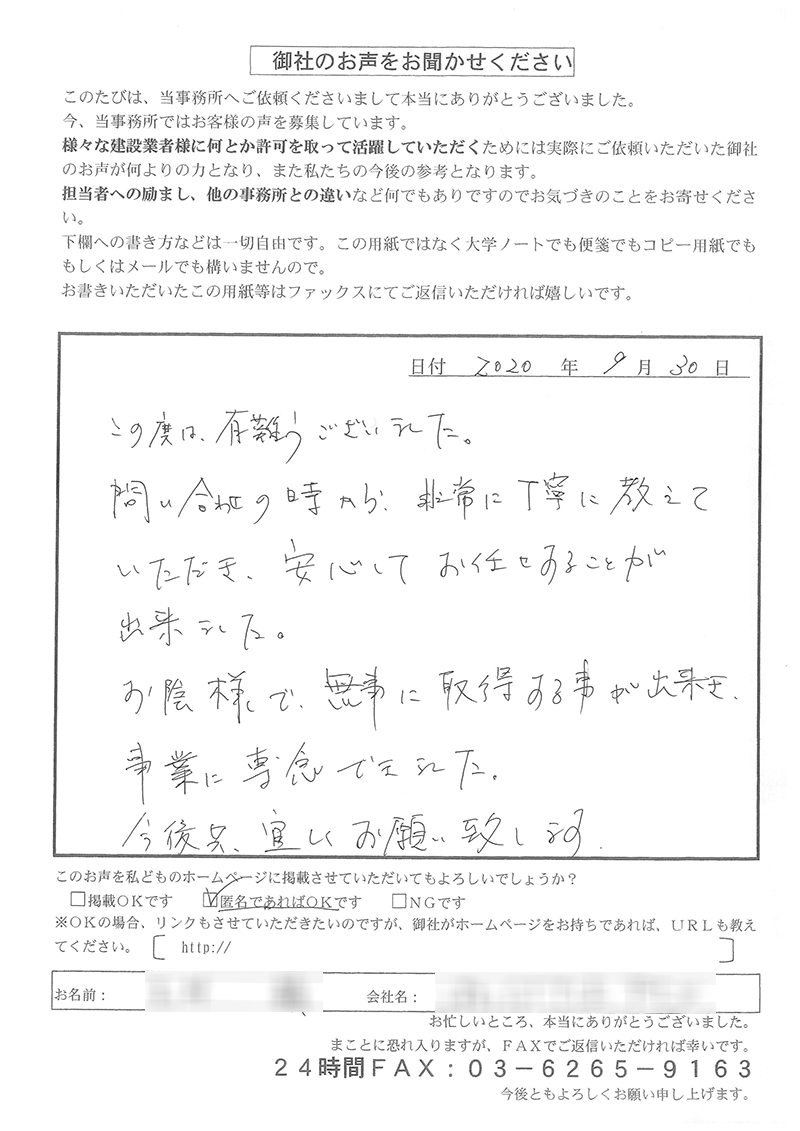 御社のお声をお聞かせください
このたびは、当事務所へご依頼くださいまして本当にありがとうございました。
今、当事務所ではお客様の声を募集しています。
様々な建設業者様に何とか許可を取って活躍していただくためには実際にご依頼いただいた御社
のお声が何よりの力となり、また私たちの今後の参考となります。
担当者への励まし、他の事務所との違いなど何でもありですのでお気づきのことをお寄せくださ
い。
下欄への書き方などは一切自由です。この用紙ではなく大学ノートでも便箋でもコピー用紙でも
もしくはメールでも構いませんので。
お書きいただいたこの用紙等はファックスにてご返信いただければ嬉しいです。
日付 2020 年 9 月 30 日
この度は、有難うございました。
問い合わせの時から、非常に丁寧に教えて
いただき、安心してお任せすることが
出来ました。
お陰様で、無事に取得する事が出来き、
事業に専念できました。
今後共、宜しくお願い致します.
このお声を私どものホームページに掲載させていただいてもよろしいでしょうか？
□掲載ＯＫです ☑匿名であればＯＫです □ＮＧです
※ＯＫの場合、リンクもさせていただきたいのですが、御社がホームページをお持ちであれば、ＵＲＬも教え
てください。［ http:// ］
お名前： 会社名：
お忙しいところ、本当にありがとうございました。
まことに恐れ入りますが、ＦＡＸでご返信いただければ幸いです。
２４時間ＦＡＸ：０３－６２６５－９１６３
今後ともよろしくお願い申し上げます。